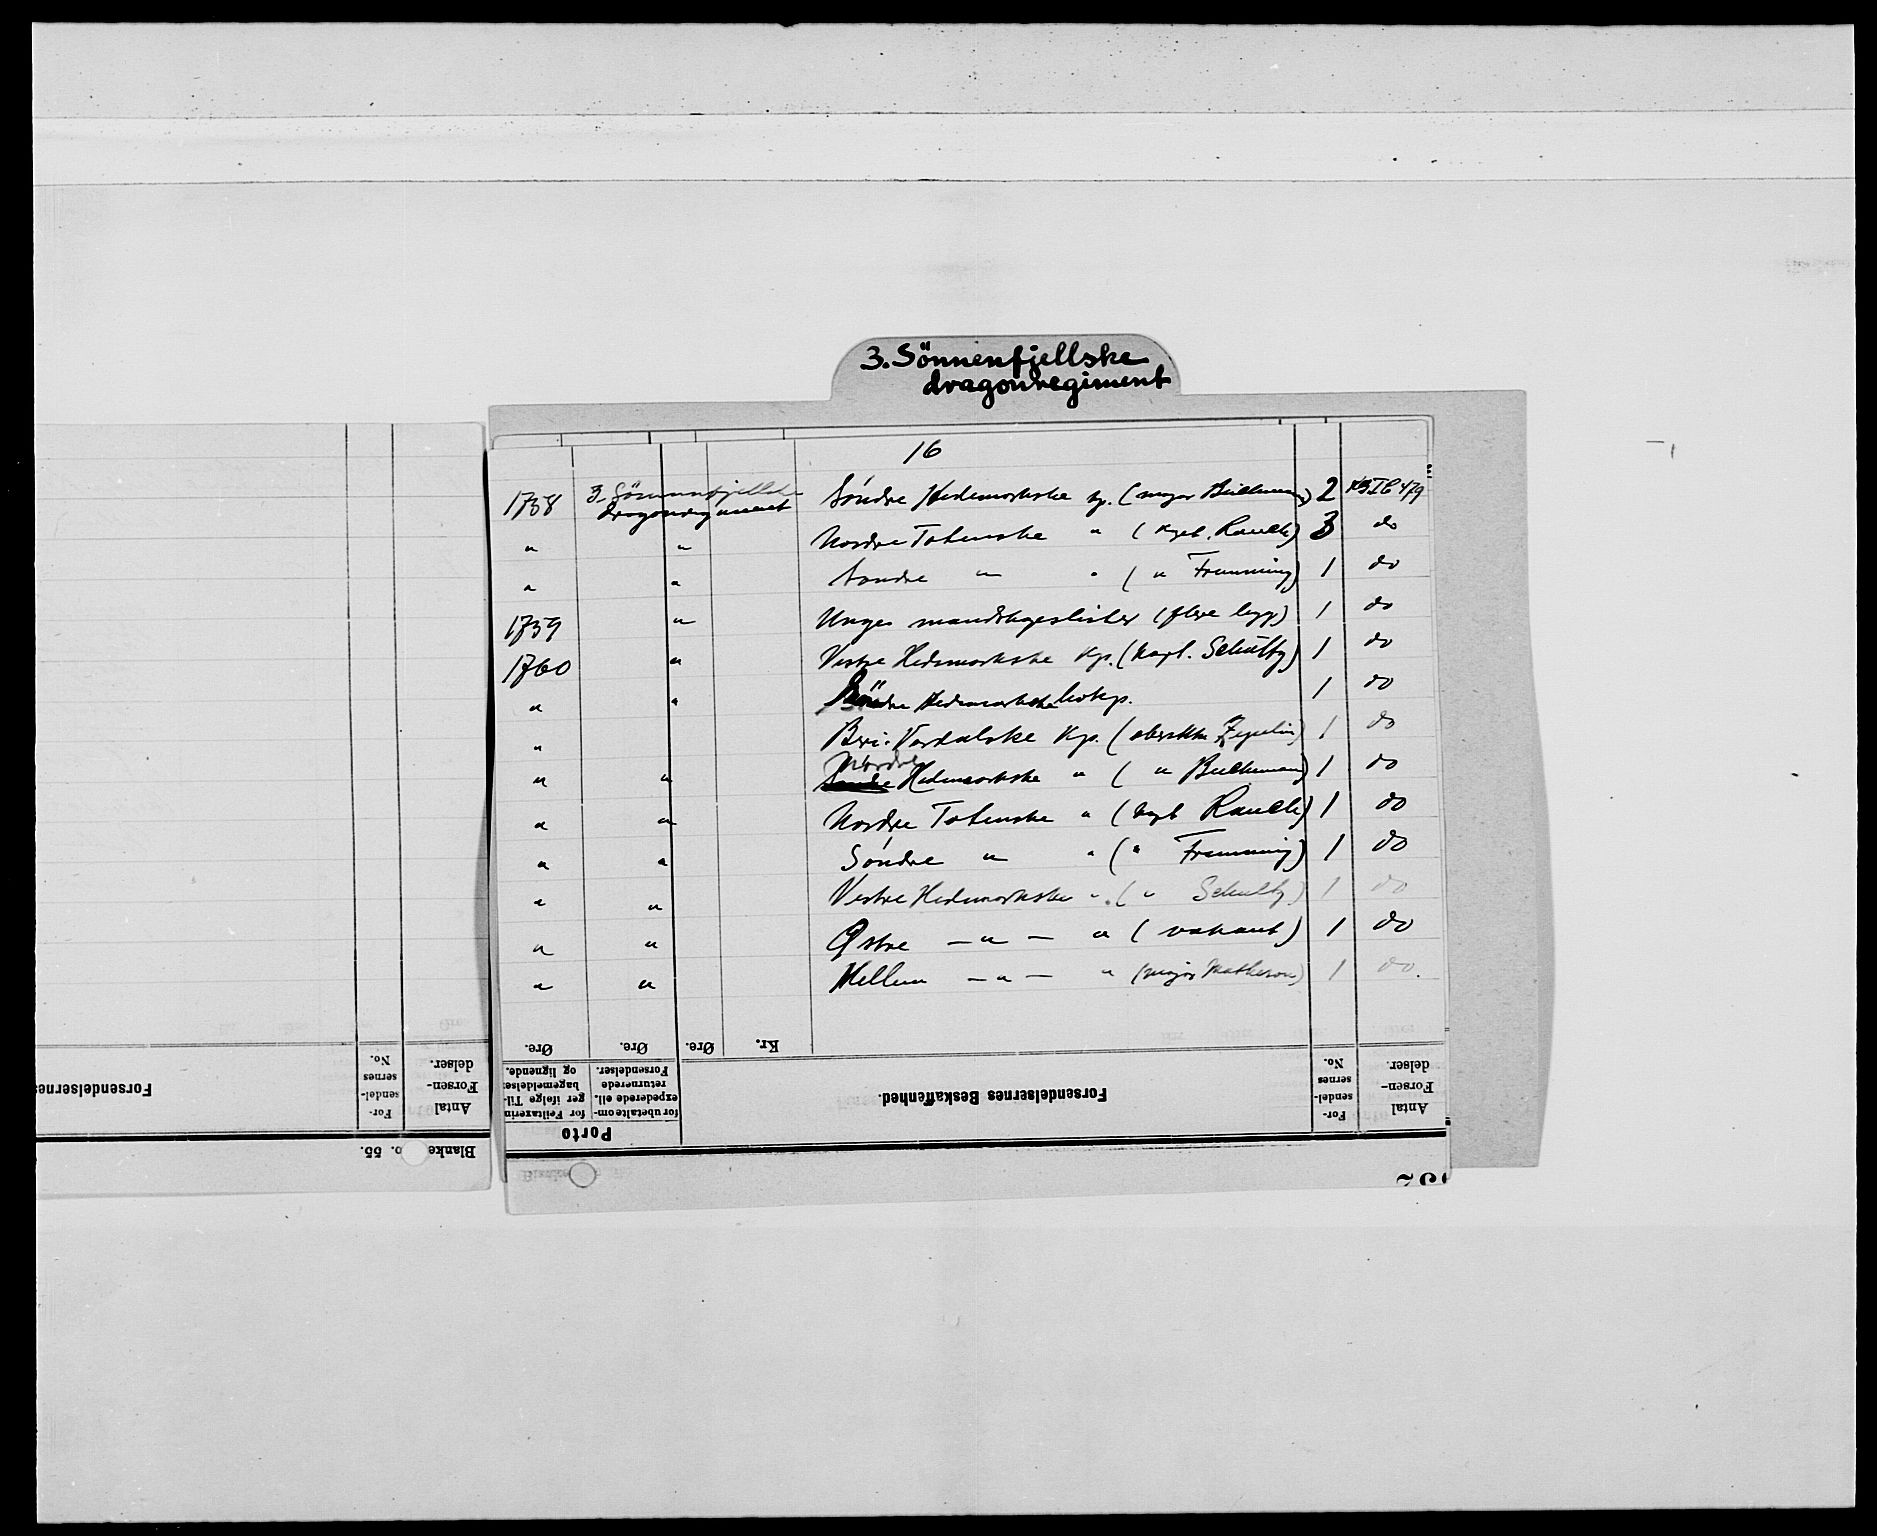 3. Sönnenfjellske
dragonregiment
16
1758 3. Sönnenfjellske dragonregiment Söndre Hedemarkske kp. (major Buchman) 2 KB I C 479
" " Nordre Totenske " ( kapt. Rauch) 3 do
" " Söndre " " ( " Fremming) 1 do
1759 " Unge mandskapslister (flere legg) 1 do
1760 " Vestre Hedemarkske Kp. (kapt. Schultz) 1 do
" " Söndre Hedemarkske livkp. 1 do
" Biri-Vardalske Kp. ( oberstltn Zepelin) 1 do
" " Nordre Hedemarkske " ( " Buchman) 1 do
" " Nordre Totenske " (kapt Rauch) 1 do
" " Söndre " " ( " Fremming) 1 do
" " Vestre Hedemarkske " ( " Schultz) 1 do
" " Østre — " — " ( vakant) 1 do
" " Mellem — " — " (major Matheson) 1 do.
Øre. Øre. Øre. Kr.
Porto
for ubetalte om-
expederede ell.
returnerede
Forsendelser.
for Feiltaxerin
ger ifølge Til-
bagemeldelse:
og lignende.
Forsendelsernes Beskaffenhed.
For-
sendel-
sernes
No.
Antal
Forsen-
delser.
Forsendelsernes
For-
sendel-
sernes
No.
Antal
Forsen-
delser.
Blanke o. 55.